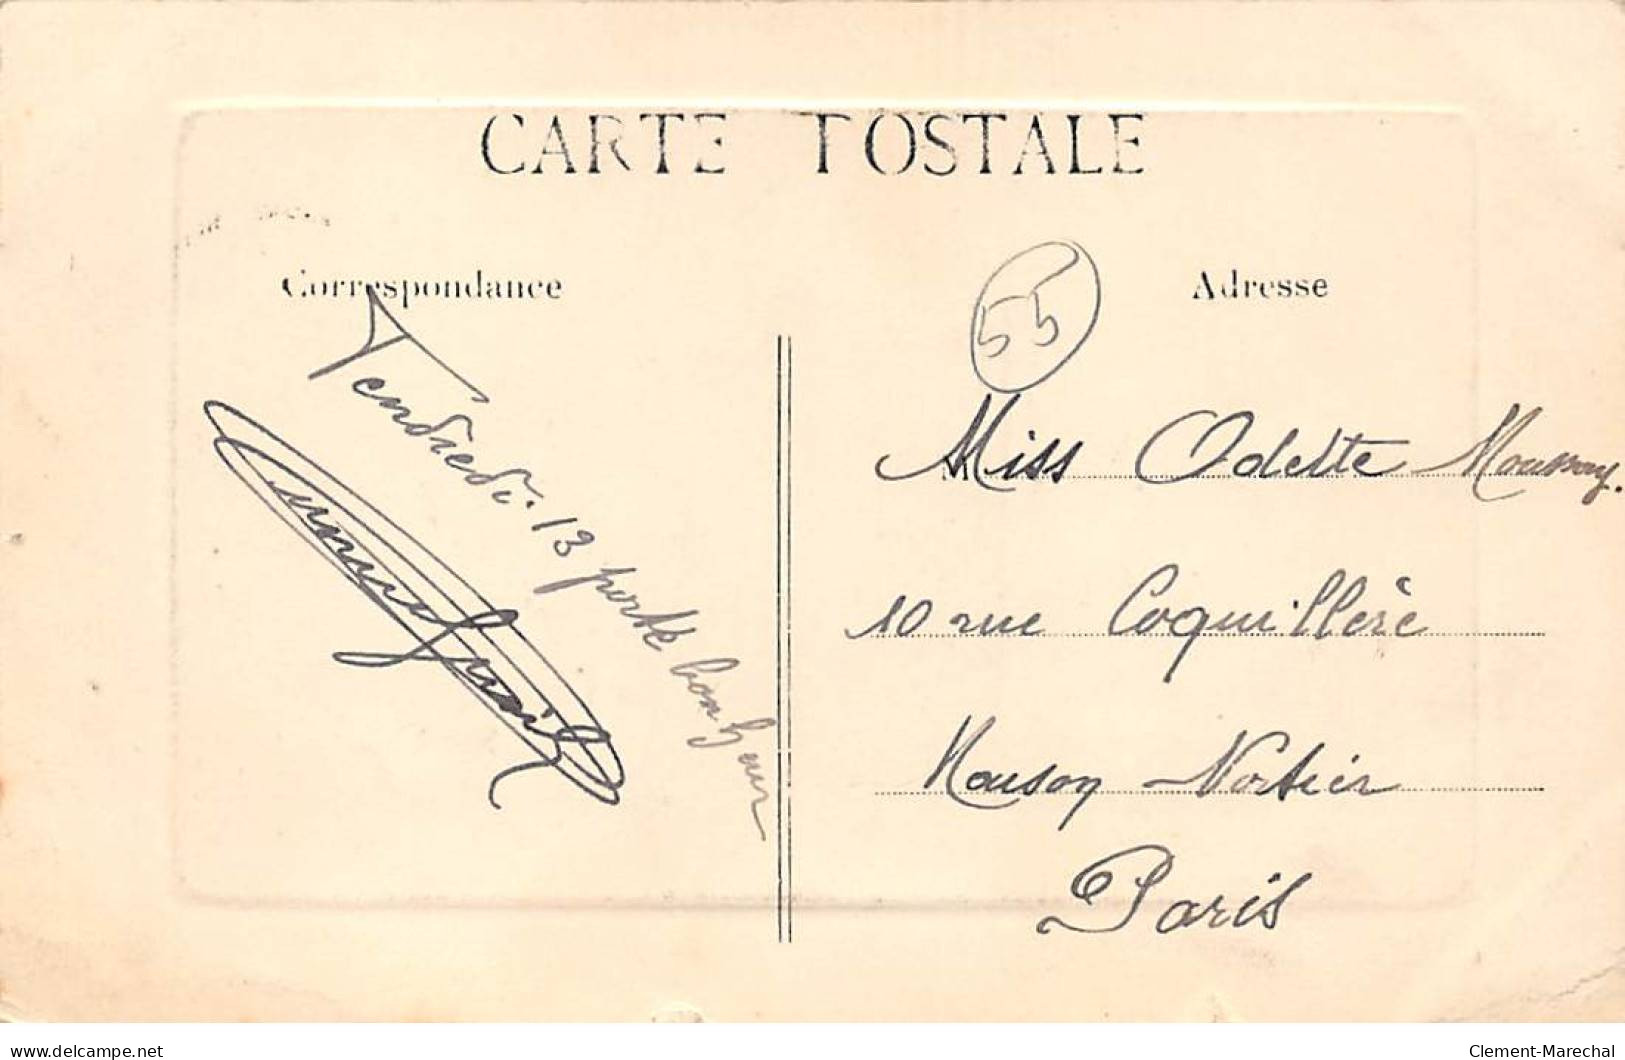 CARTE POSTALE
Correspondance
Adresse
55
Vendredi 13 porte bonheur
Miss Odette Moussay.
10 rue Coquillère
Maison Nortier
Paris
delcampe.net
Clement-Marechal